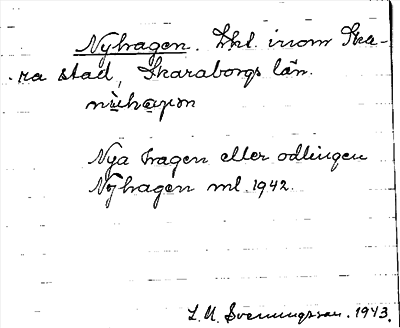 Nyhagen. Lhl. inom Ska-
ra stad, Skaraborgs län.
nỳhàɡən
Nya hagen eller odlingen
Nyhagen ml. 1942.
L. M. Svenungsson. 1943.